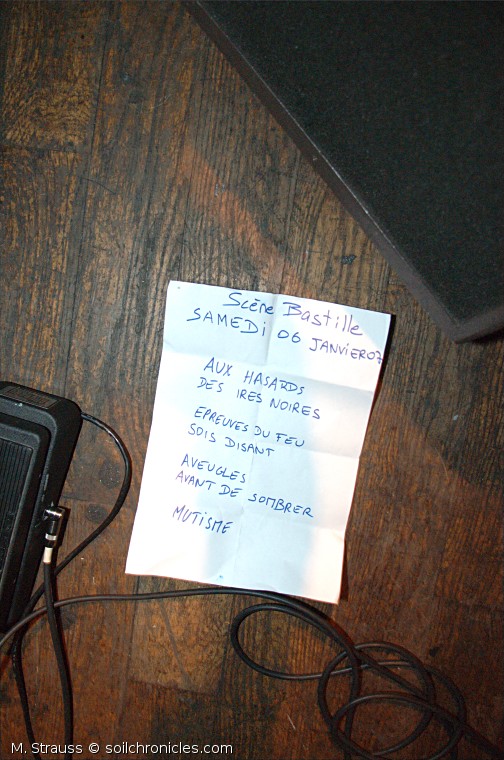 Scène Bastille
SAMEDI 06 JANVIER 07
AUX HASARDS
DES IRES NOIRES
EPREUVES DU FEU
SOIS DISANT
AVEUGLES
AVANT DE SOMBRER
MUTISME
M. Strauss © soilchronicles.com